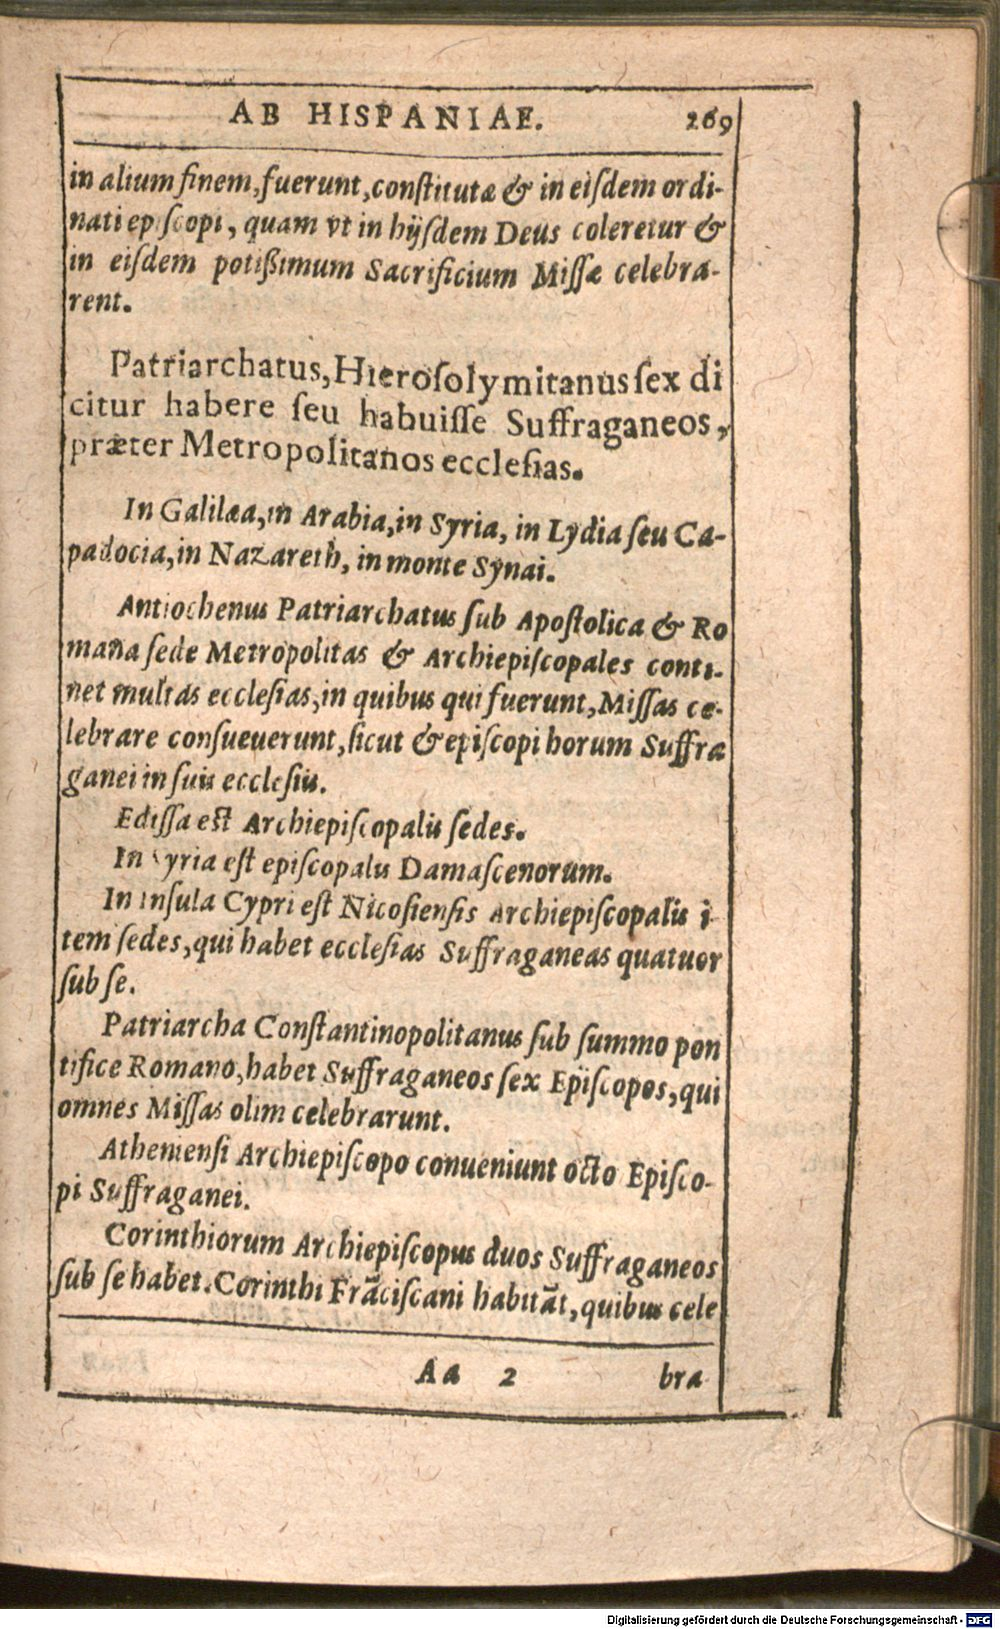 AB HISPANIAE. 269
in alium finem, fuerunt, constitutæ & in eisdem ordi-
nati episcopi, quam vt in hijsdem Deus coleretur &
in eisdem potißimum Sacrificium Missæ celebra-
rent.
Patriarchatus, Hierosolymitanus sex di
citur habere seu habuisse Suffraganeos,
præter Metropolitanos ecclesias.
In Galilæa, in Arabia, in Syria, in Lydia seu Ca-
padocia, in Nazareth, in monte Synai.
Antiochenus Patriarchatus sub Apostolica & Ro
mana sede Metropolitas & Archiepiscopales conti-
net multas ecclesias, in quibus qui fuerunt, Missas ce-
lebrare consueuerunt, sicut & episcopi horum Suffra
ganei in suis ecclesiis.
Edissa est Archiepiscopalis sedes.
In Syria est episcopalis Damascenorum.
In Insula Cypri est Nicosiensis Archiepiscopalis i-
tem sedes, qui habet ecclesias Suffraganeas quatuor
sub se.
Patriarcha Constantinopolitanus sub summo pon
tifice Romano, habet Suffraganeos sex Episcopos, qui
omnes Missas olim celebrarunt.
Atheniensi Archiepiscopo conueniunt octo Episco-
pi Suffraganei.
Corinthiorum Archiepiscopus duos Suffraganeos
sub se habet. Corinthi Frãciscani habitãt, quibus cele
Aa 2 bra
Digitalisierung gefördert durch die Deutsche Forschungsgemeinschaft - DFG